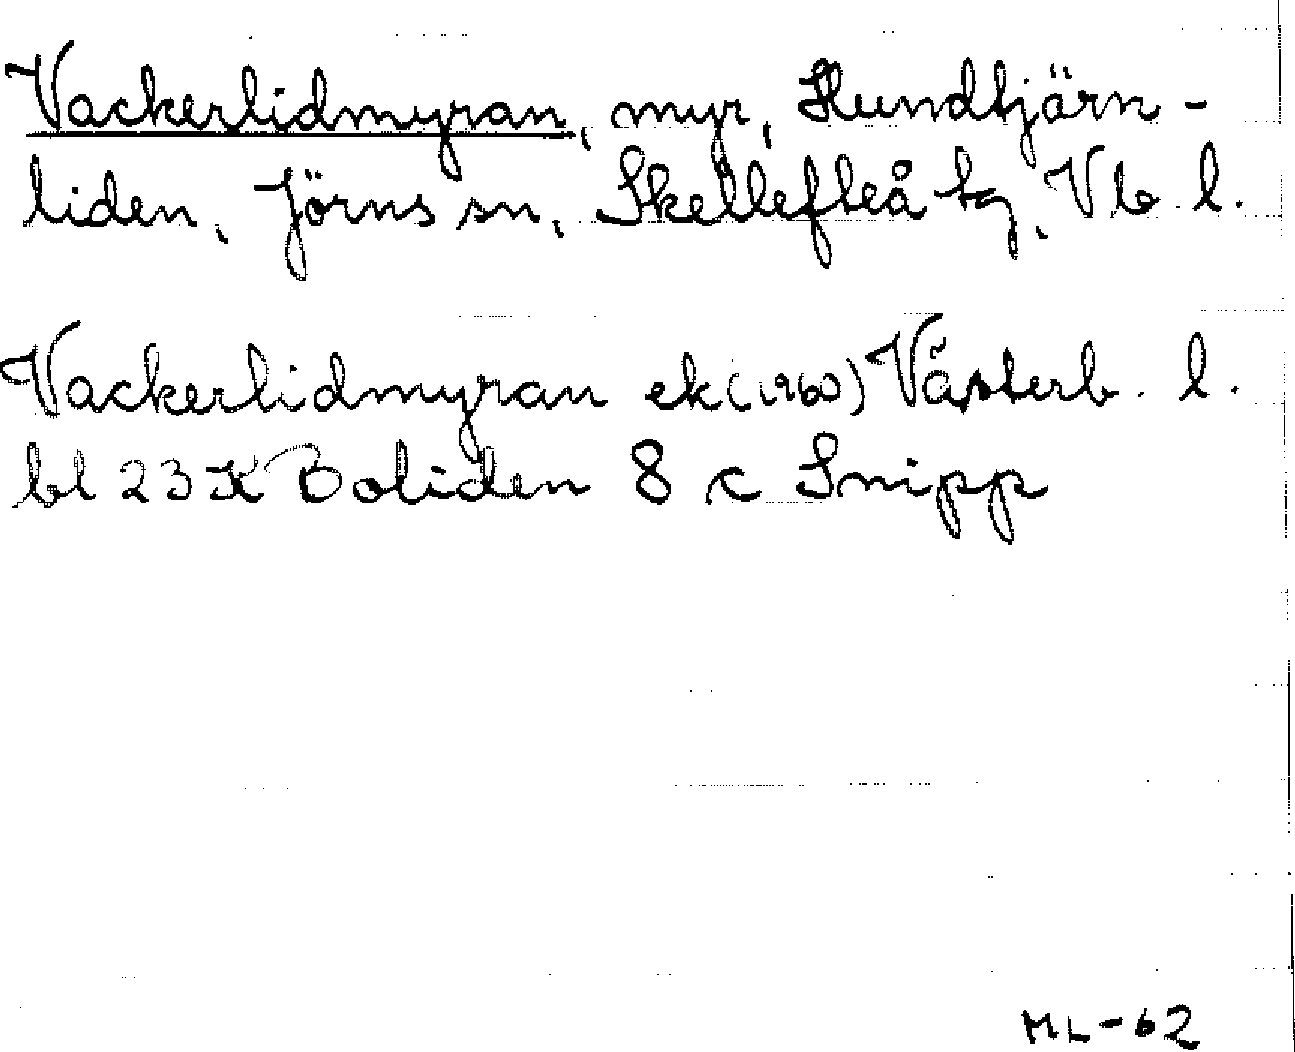 Vackerlidmyran, myr, Hundtjärn-
liden, Jörns sn, Skellefteå tg, Vb l.
Vackerlidmyran ek (1960) Västerb. l.
bl 23 K Boliden 8 c Snipp
ML-62